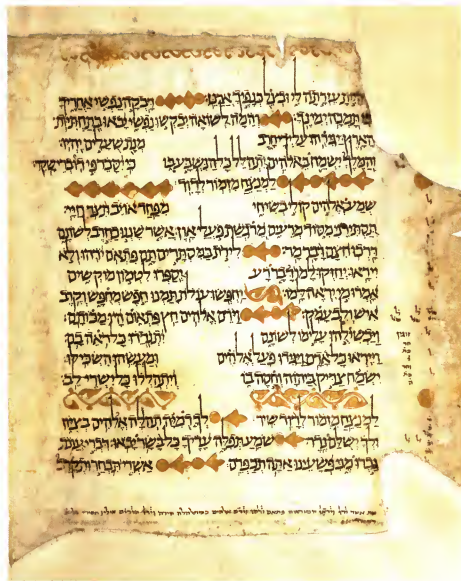 היית עזרתה לי ובצל כנפיך ארנן דבקה נפשי אחריך
בי תמכה ימינך והמה לשואה יבקשו נפשי יבאו בתחתיות
הארץ יגירהו על ידי חרב מנת שעלים יהיו
והמלך ישמח באלהים יתהלל כל הנשבע בו כי יסכר פי דוברי שקר
למנצח מזמור לדוד
שמע אלהים קולי בשיחי מפחד אויב תצר חיי
תסתירני מסוד מרעים מרגשת פעלי און אשר שננו כחרב לשונם
דרכו חצם דבר מר לירות במסתרים תם פתאם ירהו ולא
ייראו יחזקו למו דבר רע יספרו לטמון מוקשים
אמרו מי יראה למו יחפשו עולת תמנו חפש מחפש וקרב
איש ולב עמק וירם אלהים חץ פתאום היו מכותם
ויכשילהו עלימו לשונם יתנדדו כל ראה בם
וייראו כל אדם ויגידו פעל אלהים ומעשהו השכילו
ישמח צדיק ביהוה וחסה בו ויתהללו כל ישרי לב
למנצח מזמור לדוד שיר לך דמיה תהלה אלהים בציון
ולך ישלם נדר שמע תפלה עדיך כל בשר יבאו דברי עונת
גברו מני פשעינו אתה תכפרם אשרי תבחר ותקרב